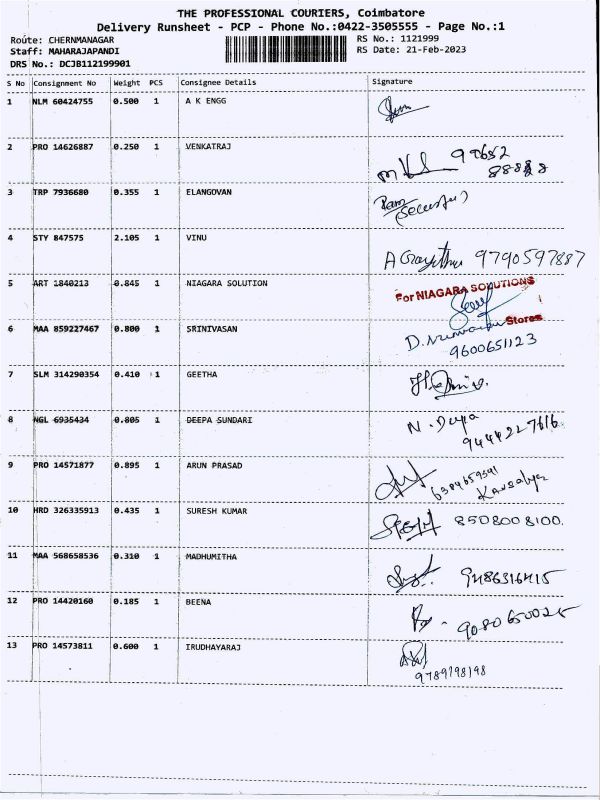 THE PROFESSIONAL COURIERS, Coimbatore
Delivery Runsheet - PCP - Phone No.:0422-3505555 - Page No.:1
Route: CHERNMANAGAR
Staff: MAHARAJAPANDI
DRS No.: DCJB112199901
RS No.: 1121999
RS Date: 21-Feb-2023
S No Consignment No Weight PCS Consignee Details Signature
1 NLM 60424755 0.500 1 A K ENGG
2 PRO 14626887 0.250 1 VENKATRAJ 99652
88888
3 TRP 7936680 0.355 1 ELANGOVAN
(Security)
4 STY 847575 2.105 1 VINU A Gayathri 9790597887
5 ART 1840213 0.845 1 NIAGARA SOLUTION For NIAGARA SOLUTIONS
Stores
6 MAA 859227467 0.800 1 SRINIVASAN
9600651123
7 SLM 314290354 0.410 1 GEETHA
8 NGL 6935434 0.805 1 DEEPA SUNDARI N. Deepa
9444227616
9 PRO 14571877 0.895 1 ARUN PRASAD 6384659591
Kausalya
10 HRD 326335913 0.435 1 SURESH KUMAR 8508008100.
11 MAA 568658536 0.310 1 MADHUMITHA 9486316415
12 PRO 14420160 0.185 1 BEENA 9080650025
13 PRO 14573811 0.600 1 IRUDHAYARAJ
9789798198